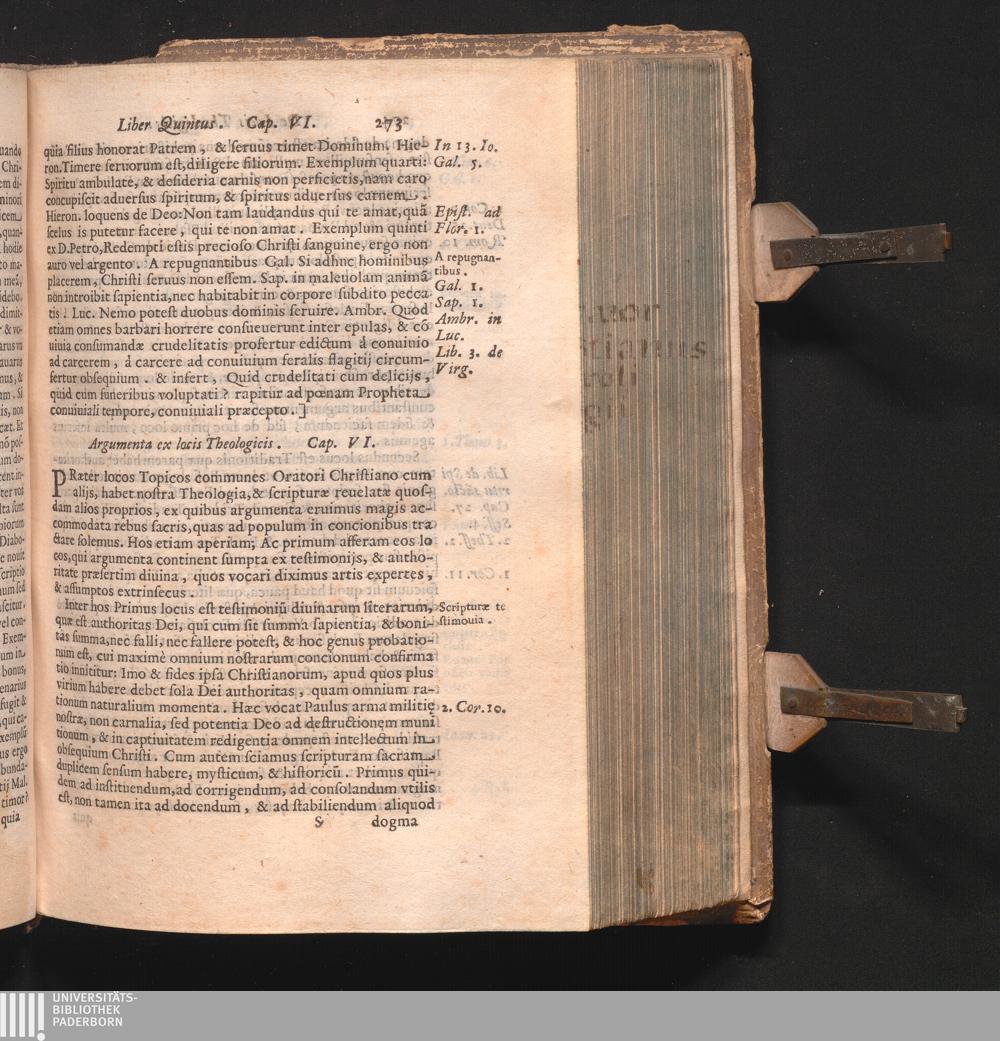 Liber Quintus. Cap. VI. 273
quia filius honorat Patrem, & seruus timet Dominum. Hie-
ron. Timere seruorum est, diligere filiorum. Exemplum quarti:
Spiritu ambulate, & desideria carnis non perficietis, nam caro
concupiscit aduersus spiritum, & spiritus aduersus carnem.
Hieron. loquens de Deo: Non tam laudandus qui te amat, quã
scelus is putetur facere, qui te non amat. Exemplum quinti
ex D. Petro, Redempti estis precioso Christi sanguine, ergo non
auro vel argento. A repugnantibus Gal. Si adhuc hominibus
placerem, Christi seruus non essem. Sap. in maleuolam animã
non introibit sapientia, nec habitabit in corpore subdito pecca
tis. Luc. Nemo potest duobus dominis seruire. Ambr. Quod
etiam omnes barbari horrere consueuerunt inter epulas, & cõ
uiuia consumandæ crudelitatis profertur edictum á conuinio
ad carcerem, á carcere ad conuiuium feralis flagitij circum-
fertur obsequium. & infert, Quid crudelitati cum delicijs,
quid cum funeribus voluptati? rapitur ad pœnam Propheta
conuiuiali tempore, conuiuiali præcepto.]
In 13. Io.
Gal. 5.
Epist. ad
Flor. 1.
A repugnan-
tibus.
Gal. 1.
Sap. 1.
Ambr. in
Luc.
Lib. 3. de
Virg.
Argumenta ex locis Theologicis. Cap. VI.
PRæter locos Topicos communes Oratori Christiano cum
alijs, habet nostra Theologia, & scripturæ reuelatæ quos-
dam alios proprios, ex quibus argumenta eruimus magis ac-
commodata rebus sacris, quas ad populum in concionibus tra
ctare solemus. Hos etiam aperiam; Ac primum afferam eos lo
cos, qui argumenta continent sumpta ex testimonijs, & autho-
ritate præsertim diuina, quos vocari diximus artis expertes,
& assumptos extrinsecus.
Inter hos Primus locus est testimoniũ diuinarum literarum,
quæ est authoritas Dei, qui cum sit summa sapientia, & boni-
tas summa, nec falli, nec fallere potest, & hoc genus probatio-
num est, cui maximè omnium nostrarum concionum confirma
tio innititur: Imo & fides ipsa Christianorum, apud quos plus
virium habere debet sola Dei authoritas, quam omnium ra-
tionum naturalium momenta. Hæc vocat Paulus arma militię
nostræ, non carnalia, sed potentia Deo ad destructionem muni
tionum, & in captiuitatem redigentia omnem intellectum in
obsequium Christi. Cum autem sciamus scripturam sacram
duplicem sensum habere, mysticum, & historicũ. Primus qui-
dem ad instituendum, ad corrigendum, ad consolandum vtilis
est, non tamen ita ad docendum, & ad stabiliendum aliquod
Scripturæ te
stimouia.
2. Cor. 10.
S dogma
UNIVERSITÄTS-
BIBLIOTHEK
PADERBORN